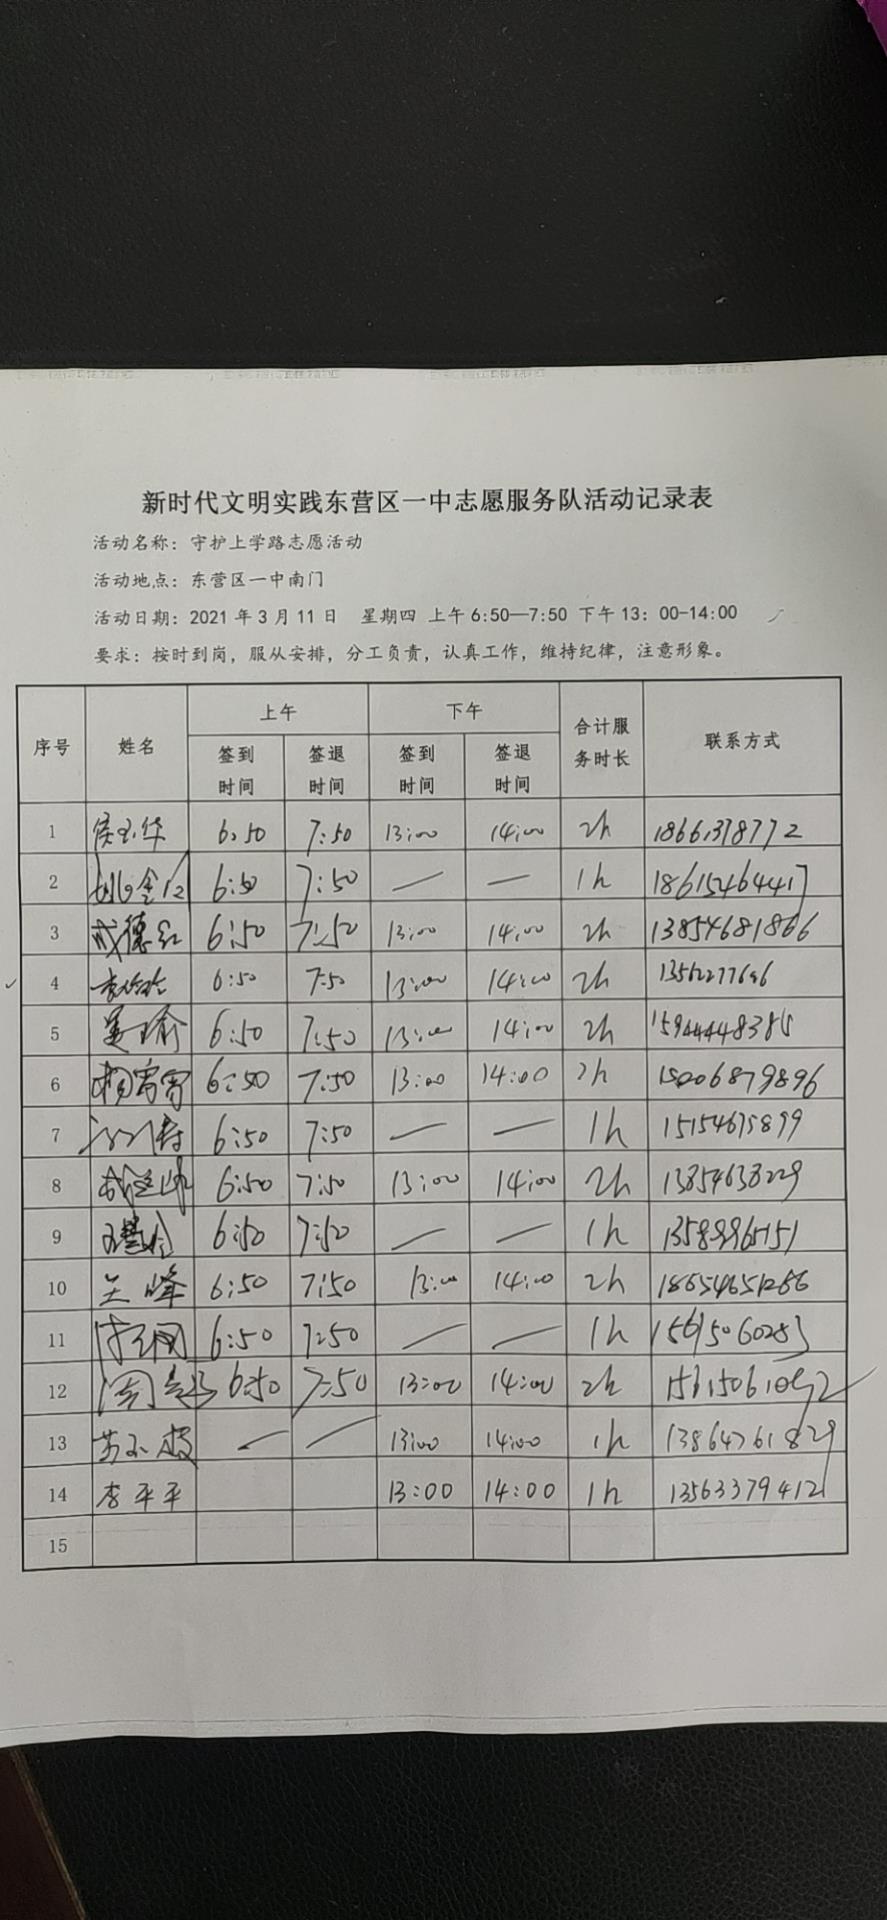 新时代文明实践东营区一中志愿服务队活动记录表
活动名称：守护上学路志愿活动
活动地点：东营区一中南门
活动日期：2021年3月11日 星期四 上午6:50—7:50 下午13：00-14:00
要求：按时到岗，服从安排，分工负责，认真工作，维持纪律，注意形象。
序号 姓名 上午 下午 合计服务时长 联系方式
签到时间 签退时间 签到时间 签退时间
1 侯玉华 6:50 7:50 13:00 14:00 2h 18661378772
2 6:50 7:50 — — 1h 18615464417
3 成德红 6:50 7:50 13:00 14:00 2h 13854681866
4 6:50 7:50 13:00 14:00 2h 13562277696
5 姜瑜 6:50 7:50 13:00 14:00 2h 15944448385
6 杨雪雪 6:50 7:50 13:00 14:00 2h 15006879896
7 6:50 7:50 — — 1h 15154675899
8 6:50 7:50 13:00 14:00 2h 13854638229
9 6:50 7:50 — — 1h 13589965151
10 王峰 6:50 7:50 13:00 14:00 2h 18654651266
11 6:50 7:50 — — 1h 15615060283
12 6:50 7:50 13:00 14:00 2h
13 — — 13:00 14:00 1h 13864761829
14 李平平 13:00 14:00 1h 13563379412
15